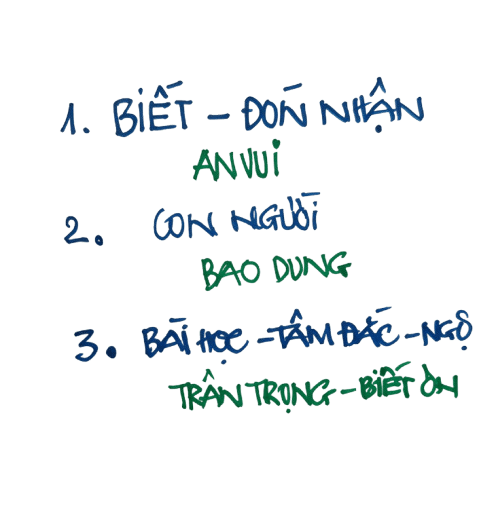 1. BIẾT - ĐÓN NHẬN
AN VUI
2. CON NGƯỜI
BAO DUNG
3. BÀI HỌC - TÂM ĐẮC - NGỘ
TRÂN TRỌNG - BIẾT ƠN